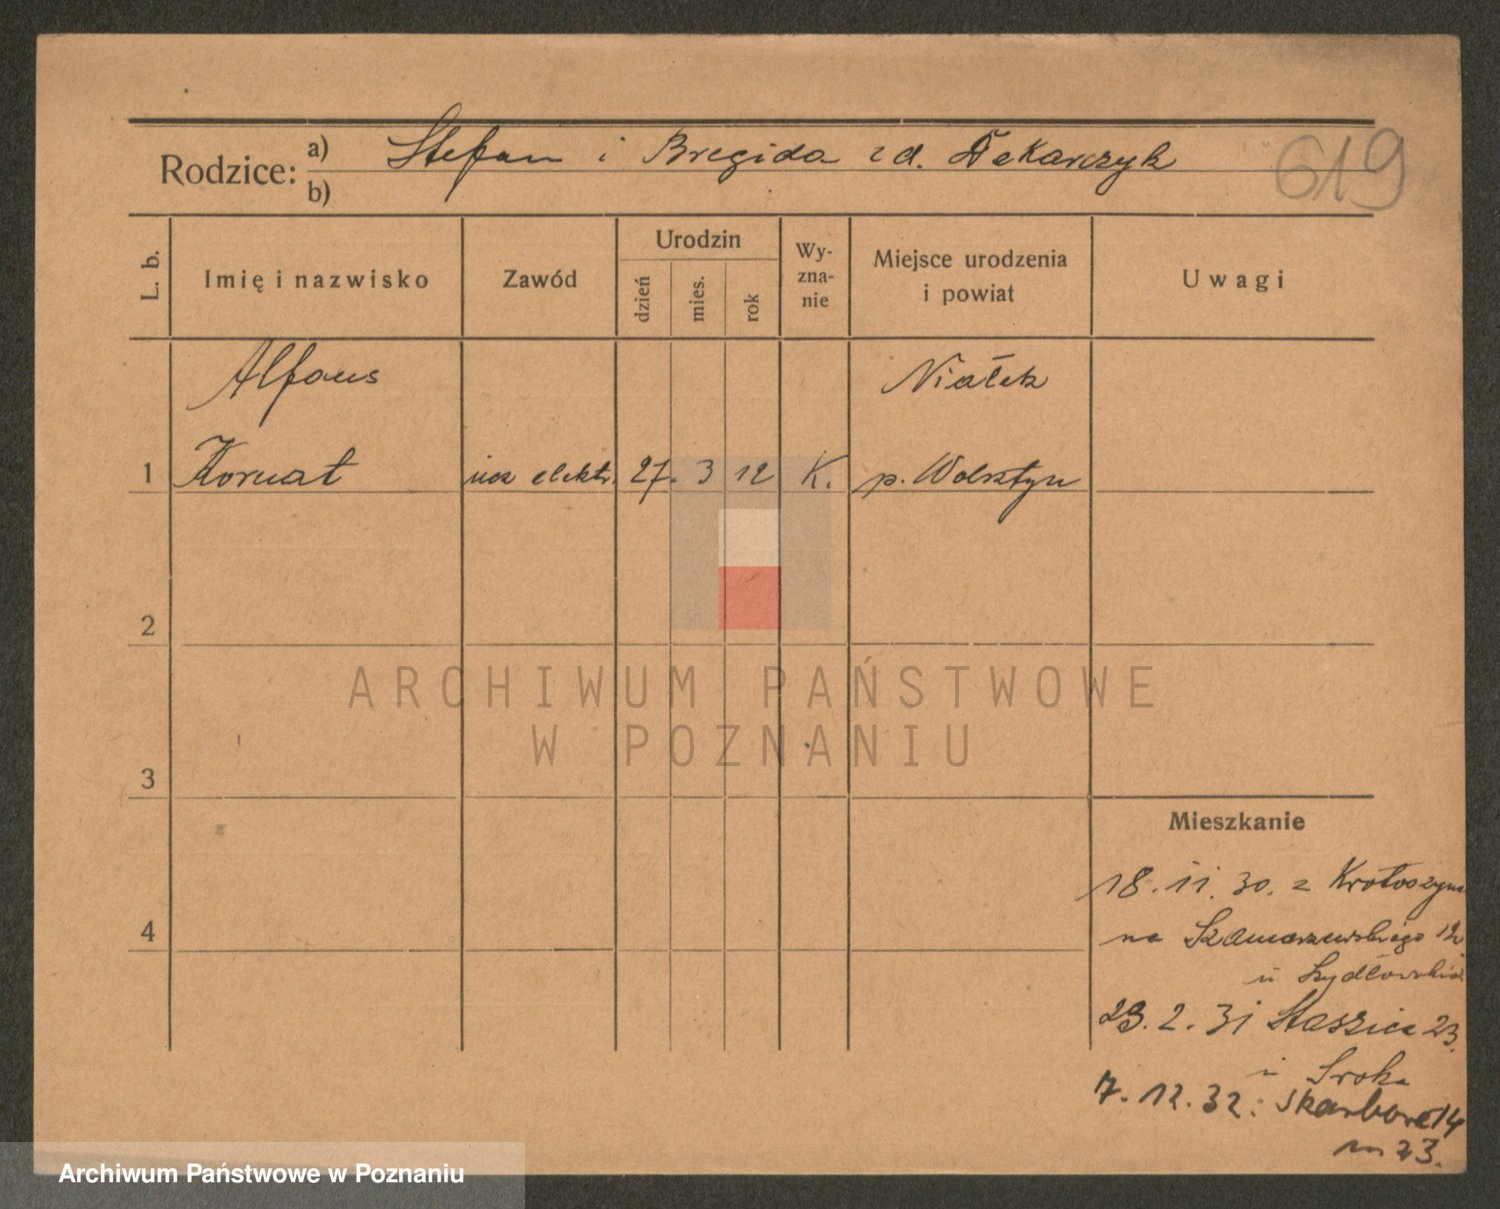 Rodzice: a) Stefan i Bregida z d. Dekarczyk
b)
619
L. b.
Imię i nazwisko
Zawód
Urodzin
dzień
mies.
rok
Wy-
zna-
nie
Miejsce urodzenia
i powiat
Uwagi
Alfons
Niałek
1 Kornat ucz elektr. 27. 3 12 K. p. Wolsztyn
2
ARCHIWUM PAŃSTWOWE
W POZNANIU
3
Mieszkanie
18.11.30. z Krotoszyna
4
na Szamarzewskiego 12
u Szydłowskiej
23.2.31 Staszica 23.
u Sroka
7.12.32: Skarbowa 14
m 23.
Archiwum Państwowe w Poznaniu